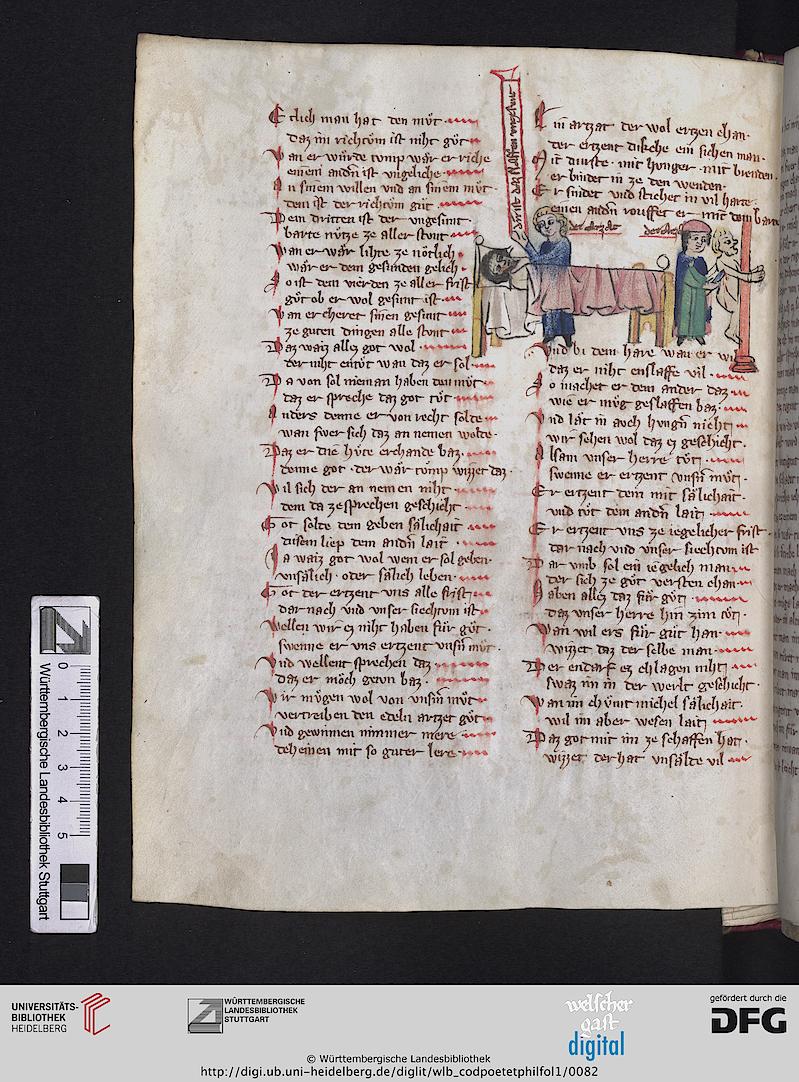 Etlich man hat den můt
daz im richtům ist niht gůt
Wan er wurde tump wær er riche
einem andn ist ungeliche
An sinem willen und an sinem můt
dem ist der richtům gůt
Dem dritten ist der ungesunt
harte nütze ze aller stunt
Wan er wær lihte ze nötlich
wær er dem gesunden gelich
So ist dem vierden ze aller frist
gůt ob er wol gesunt ist
Wan er cheret sinen gesunt
ze guten dingen alle stunt
Daz waiz allez got wol
der niht entůt wan daz er sol
Da von sol nieman haben den můt
daz er spreche daz got tůt
Anders denne er von recht solde
wan swer sich daz an nemen wolde
Daz er die hüte erchande baz
denne got der wær tump wizzet daz
Wil sich der an nemen niht
dem da ze sprechen geschicht
Got solde dem geben sælichait
disem liep dem andn lait
Ja waiz got wol wem er sol geben
unsælich oder sælich leben
Got der ertzent uns alle frist
dar nach und unser siechtum ist
Wellen wir ez niht haben für gůt
swenne er uns ertzent unsn můt
Und wellent sprechen daz
daz er möch getun baz
Wir mügen wol von unsm můt
vertreiben den edeln artzet gůt
Und gewinnen nimmer mere
deheinen mit so guter lere
Ein artzat der wol ertzen chan
der ertzent dikche ein sichen man
Mit durste mit hunger mit brenden
er bindet in ze den wenden
Er snidet und stichet in vil harte
einen andn rouffet er mit dem barte
der artzat
der
Und bi dem hare wan er wil
daz er niht enslaffe vil
So machet er dem ander daz
wie er müg geslaffen baz
Und lat in auch hungn nicht
wir sehen wol daz ez geschicht
Alsam unser herre tůt
swenne er ertzent unsn můt
Er ertzent dem mit sælichait
und tůt dem andn lait
Er ertzent uns ze iegelicher frist
dar nach und unser siechtum ist
Dar umb sol ein iegelich man
der sich ze gůt versten chan
Haben allez daz für gůt
daz unser herre hin zim tůt
Wan wil ers für gůt han
wizzet daz der selbe man
Der endarf ez chlagen niht
swaz im in der werlt geschicht
Wan im chümt michel sælichait
wil im aber wesen lait
Daz got mit im ze schaffen hat
wizzet der hat unsælde vil
0 1 2 3 4 5
Württembergische Landesbibliothek Stuttgart
UNIVERSITÄTS-
BIBLIOTHEK
HEIDELBERG
WÜRTTEMBERGISCHE
LANDESBIBLIOTHEK
STUTTGART
welscher
gast
digital
gefördert durch die
DFG
© Württembergische Landesbibliothek
http://digi.ub.uni-heidelberg.de/diglit/wlb_codpoetetphilfol1/0082